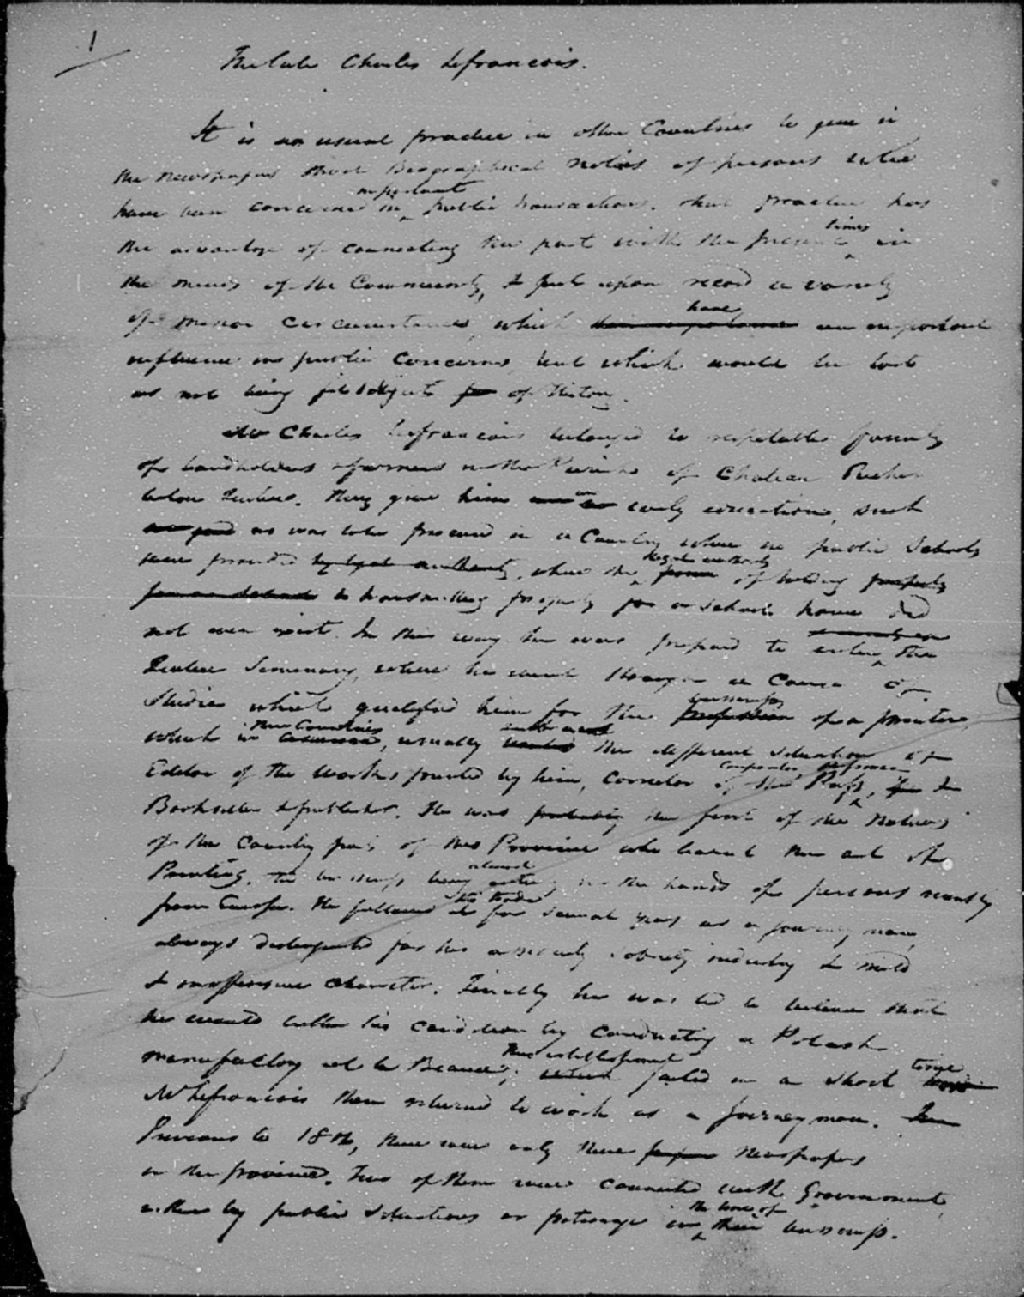 1
The late Charles Lefrancois.
It is no usual practice in other Countries to give in
the newspapers short Biographical notices of persons who
have been concerned in important public transactions. that practice has
the advantage of connecting the past with the present times in
the minds of the Community, & puts upon record a variety
of minor circumstances which have an important
influence on public Concerns, but which would be lost
as not being fit subjects for of History.
Mr Charles Lefrancois belonged to respectable family
of landholders & farmers in the Parish of Chateau Richer
below Quebec. They gave him an early education, such
as was to be procured in a Country where no public Schools
were provided by legal authority, where the legal authority of holding property
& transmitting property for schools had
not even exist. In this way he was prepared to enter the
Quebec Seminary, where he went through a Course of
Studies which qualified him for the business profession of a printer,
which in these Countries, usually embraces the different situations of
Editor of the works printed by him, Corrector of the Press, Compositor pressman &
Bookseller & publisher. He was probably the first of the Natives
of the Country part of this Province who learnt the art of
Printing, the business being in the hands of persons mostly
from Europe. He followed the trade for several years as a journeyman,
always distinguished for his assiduity sobriety industry & mild
& inoffensive character. Finally he was led to believe that
he would better his condition by conducting a Potash
manufactory at la Beauce; This establishment failed in a short time
Mr Lefrancois then returned to work as a Journeyman.
Previous to 18 , there were only three paper Newspapers
in the province. Two of them were connected with Government
either by public situations or patronage in the line of their business.